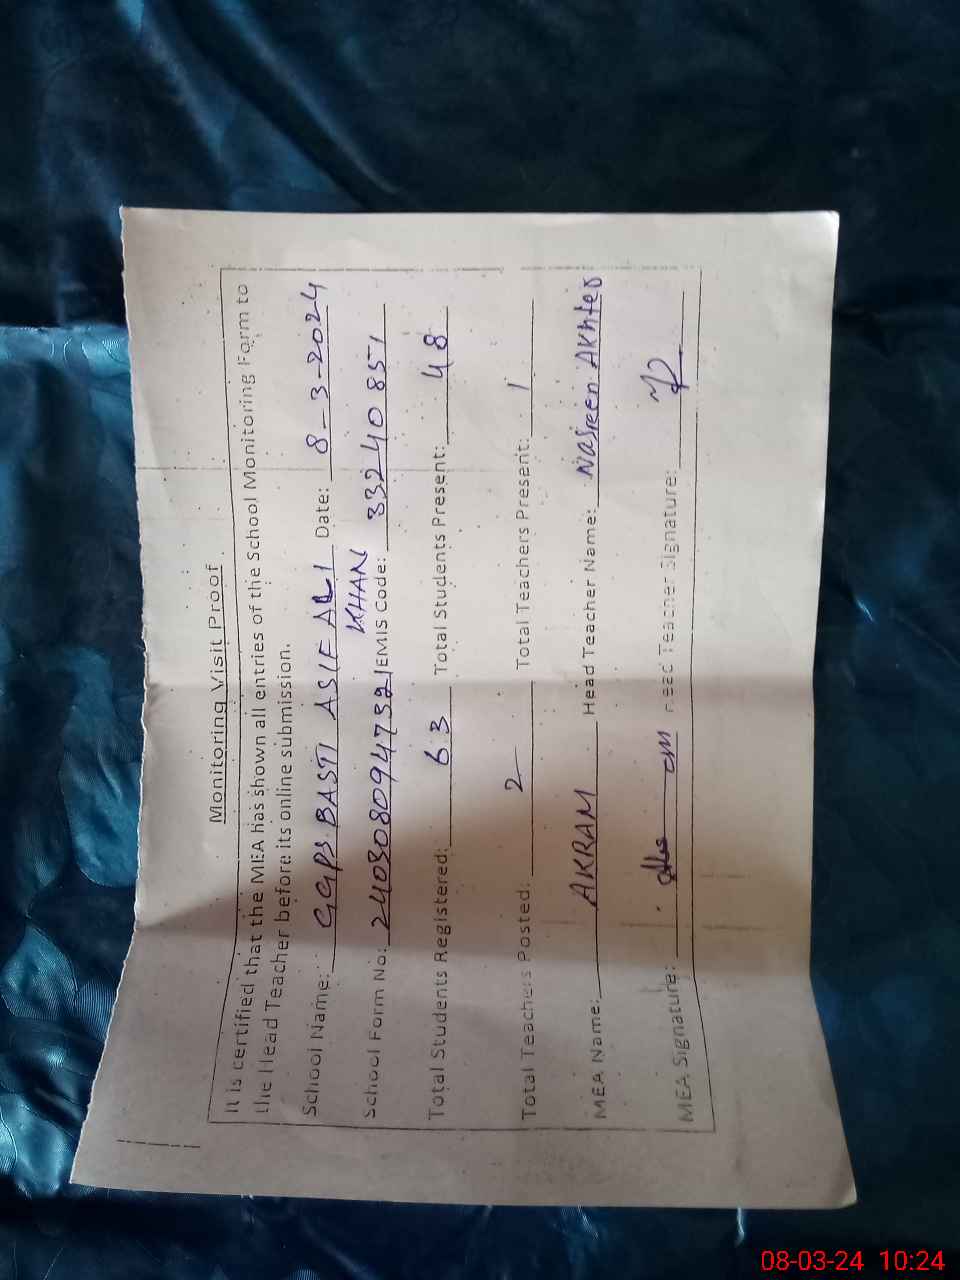 Monitoring Visit Proof
It is certified that the MEA has shown all entries of the School Monitoring Form to
the Head Teacher before its online submission.
School Name: GGPS BASTI ASIF ALI KHAN Date: 8-3-2024
School Form No: EMIS Code: 33240851
Total Students Registered: 63 Total Students Present: 48
Total Teachers Posted: 2 Total Teachers Present: 1
MEA Name: AKRAM Head Teacher Name: Nasreen Akhter
MEA Signature: Head Teacher Signature:
08-03-24 10:24